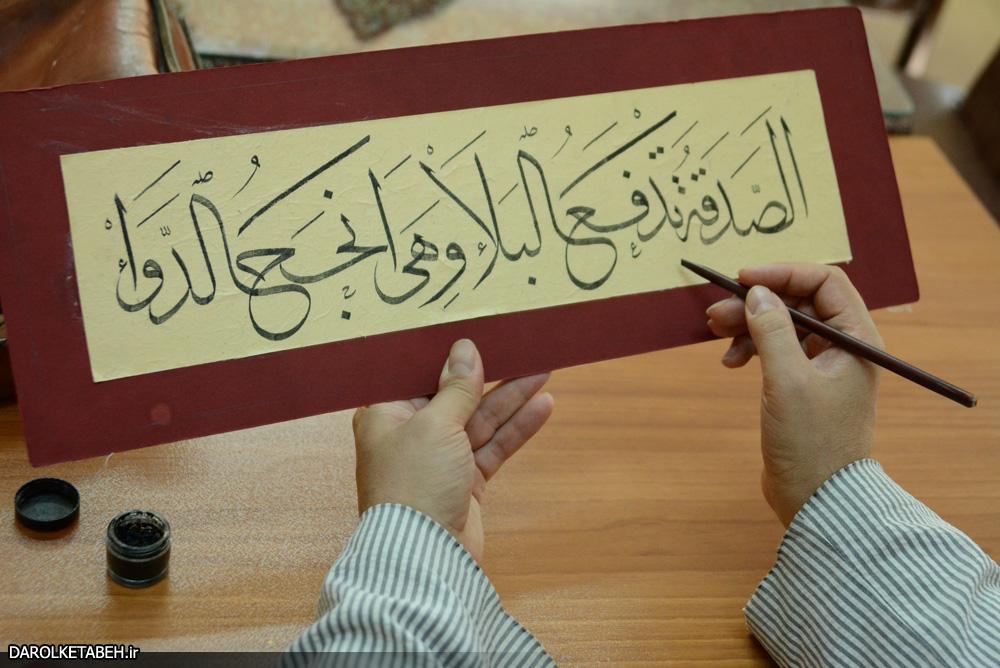 الصدقة تدفع البلاء وهی انجح الدواء
DAROLKETABEH.ir